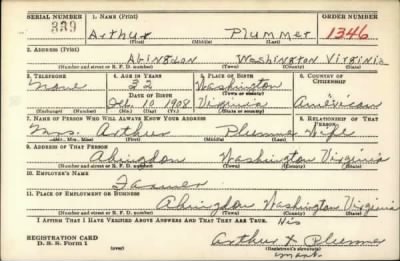 SERIAL NUMBER 1. NAME (Print) ORDER NUMBER
339 Arthur Plummer 1346
(First) (Middle) (Last)
2. ADDRESS (Print)
Abingdon Washington Virginia
(Number and street or R. F. D. number) (Town) (County) (State)
3. TELEPHONE 4. AGE IN YEARS 5. PLACE OF BIRTH 6. COUNTRY OF CITIZENSHIP
None 32 Washington
(Town or county)
DATE OF BIRTH
Oct. 10 1908 Virginia American
(Mo.) (Day) (Yr.) (State or country)
7. NAME OF PERSON WHO WILL ALWAYS KNOW YOUR ADDRESS 8. RELATIONSHIP OF THAT PERSON
Mrs. Arthur Plummer Wife
(Mr., Mrs., Miss) (First) (Middle) (Last)
9. ADDRESS OF THAT PERSON
Abingdon Washington Virginia
(Number and street or R. F. D. number) (Town) (County) (State)
10. EMPLOYER'S NAME
Farmer
11. PLACE OF EMPLOYMENT OR BUSINESS
Abingdon Washington Virginia
(Number and street or R. F. D. number) (Town) (County) (State)
I AFFIRM THAT I HAVE VERIFIED ABOVE ANSWERS AND THAT THEY ARE TRUE. His
REGISTRATION CARD Arthur X Plummer
D. S. S. Form 1 (Registrant's signature)
mark